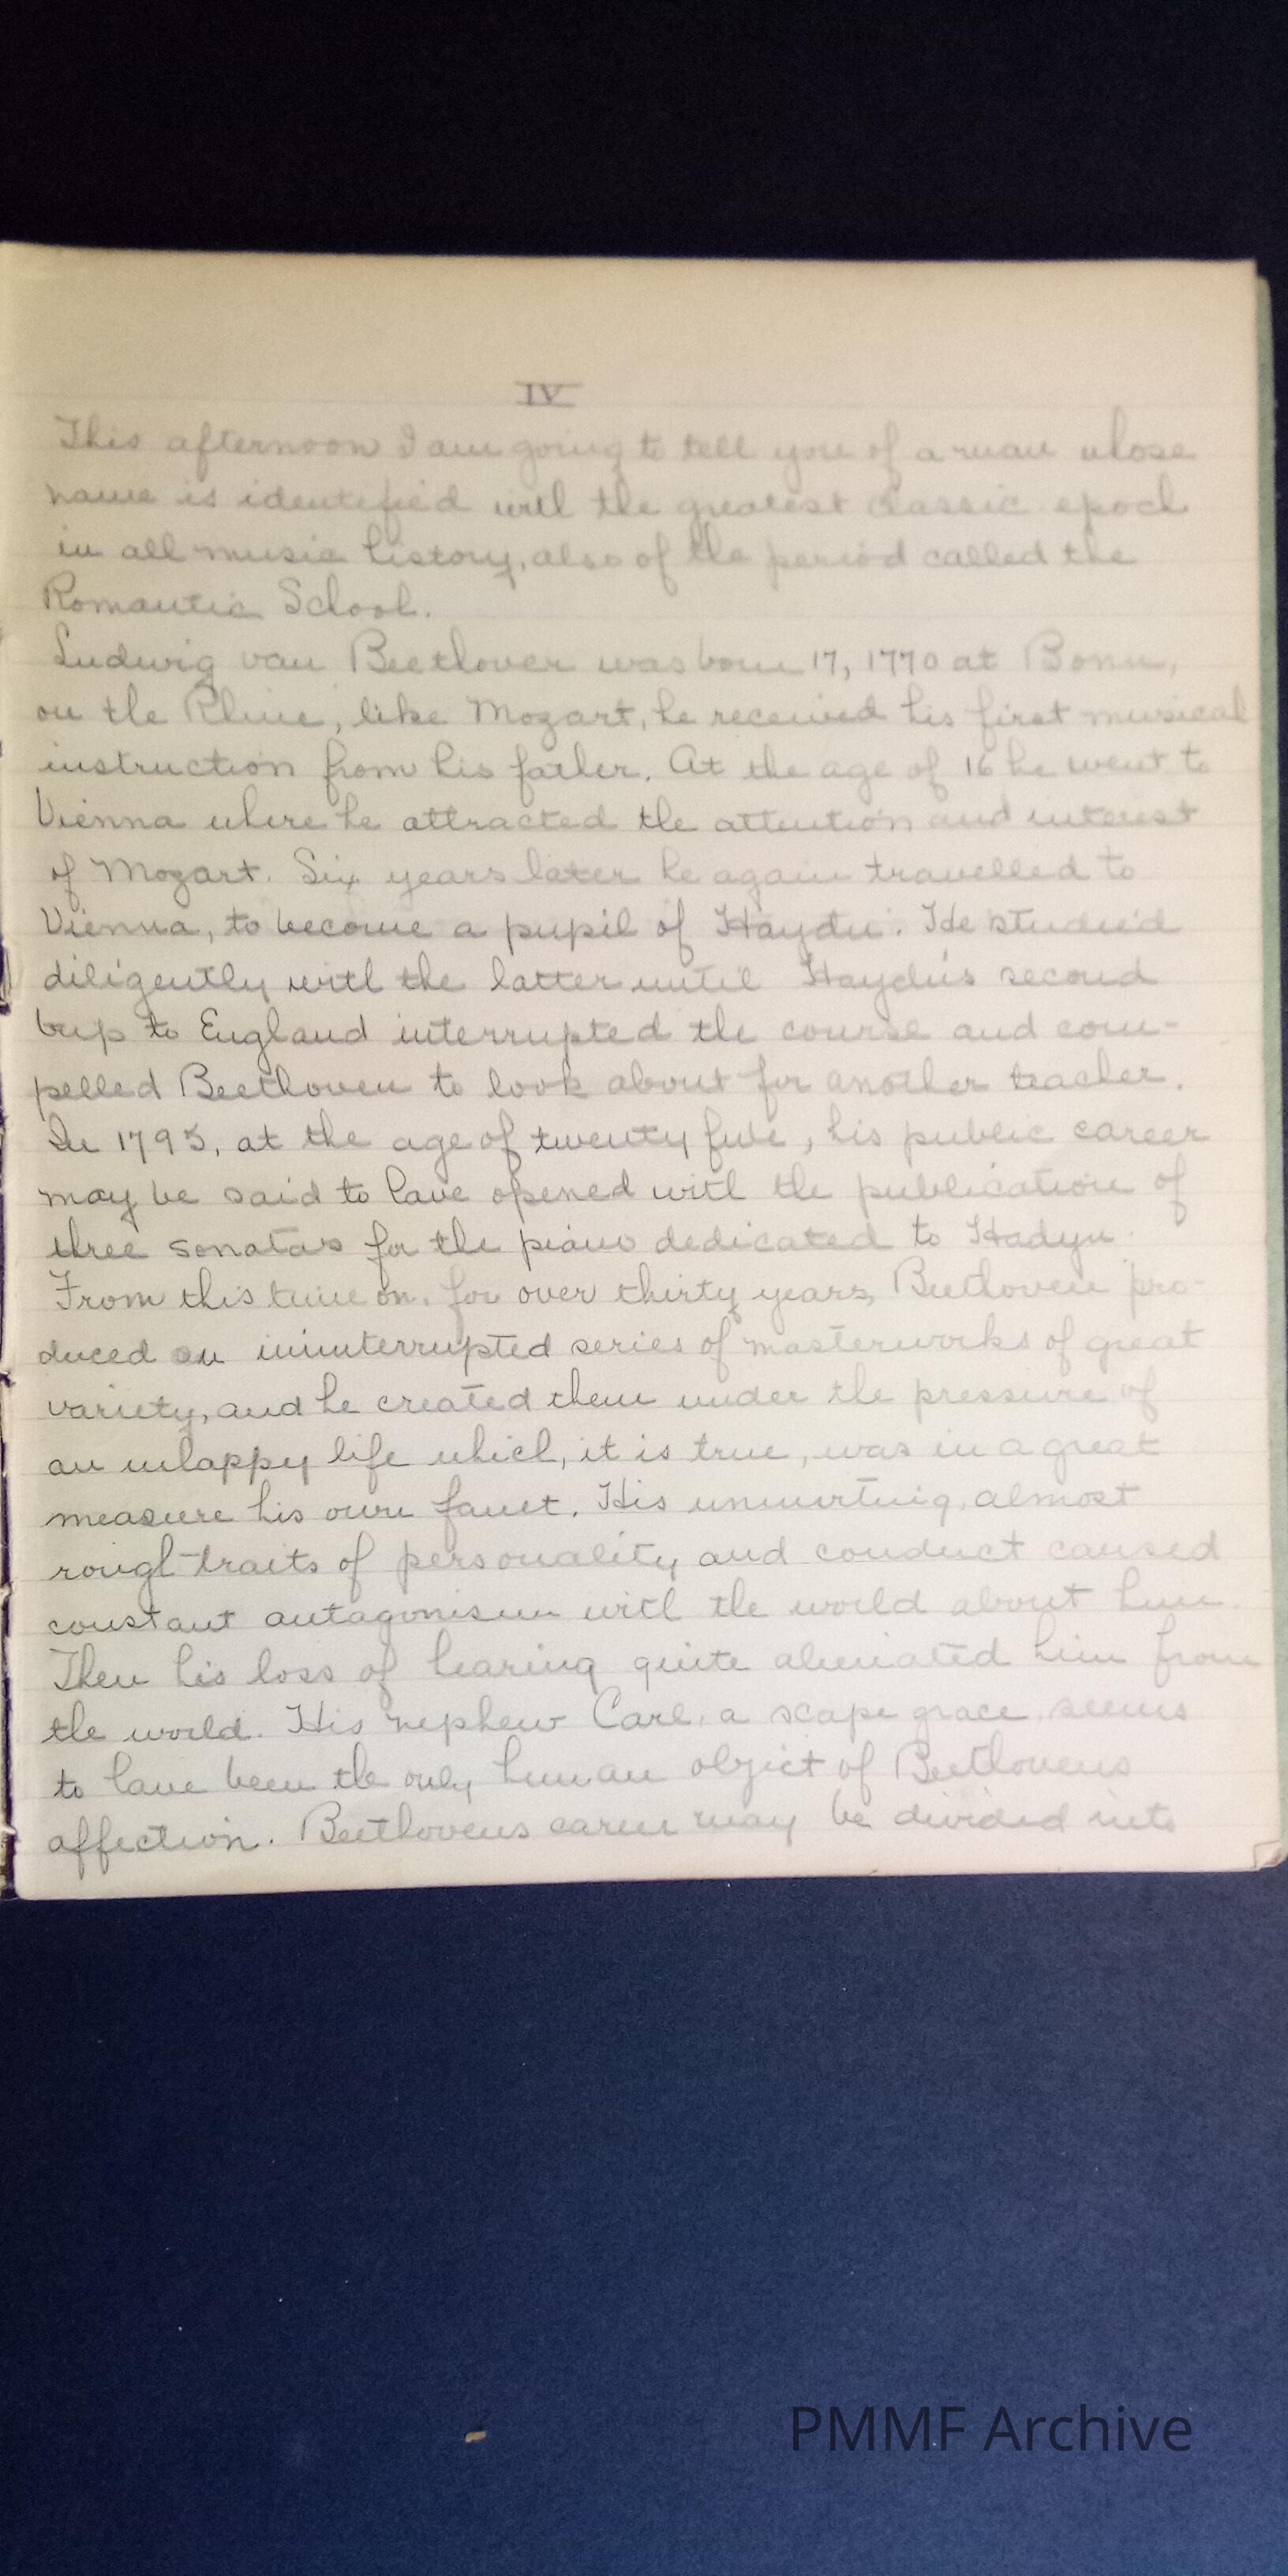 IV
This afternoon I am going to tell you of a man whose
name is identified with the greatest classic epoch
in all music history, also of the period called the
Romantic School.
Ludwig van Beethoven was born 17, 1770 at Bonn,
on the Rhine, like Mozart, he received his first musical
instruction from his father. At the age of 16 he went to
Vienna where he attracted the attention and interest
of Mozart. Six years later he again travelled to
Vienna, to become a pupil of Haydn. He studied
diligently with the latter until Haydn's second
trip to England interrupted the course and com-
pelled Beethoven to look about for another teacher.
In 1795, at the age of twenty five, his public career
may be said to have opened with the publication of
three sonatas for the piano dedicated to Hadyn
From this time on, for over thirty years, Beethoven pro-
duced an uninterrupted series of masterworks of great
variety, and he created them under the pressure of
an unhappy life which, it is true, was in a great
measure his own fault. His almost
rough traits of personality and conduct caused
constant antagonism with the world about him.
Then his loss of hearing quite alienated him from
the world. His nephew Carl, a scape grace, seems
to have been the only human object of Beethovens
affection. Beethovens career may be divided into
PMMF Archive